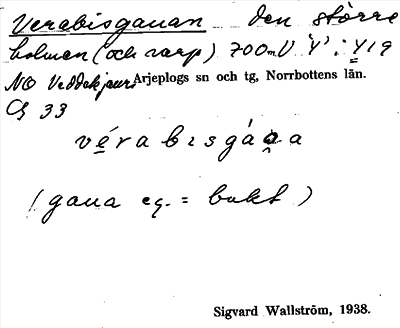 Verabisgauan den större
holmen (och varp) 700 m V 'Y' i Y19
NO Veddekjaur Arjeplogs sn och tg, Norrbottens län.
vérabısgáṷa
(gaua eg. = bukt)
Sigvard Wallström, 1938.